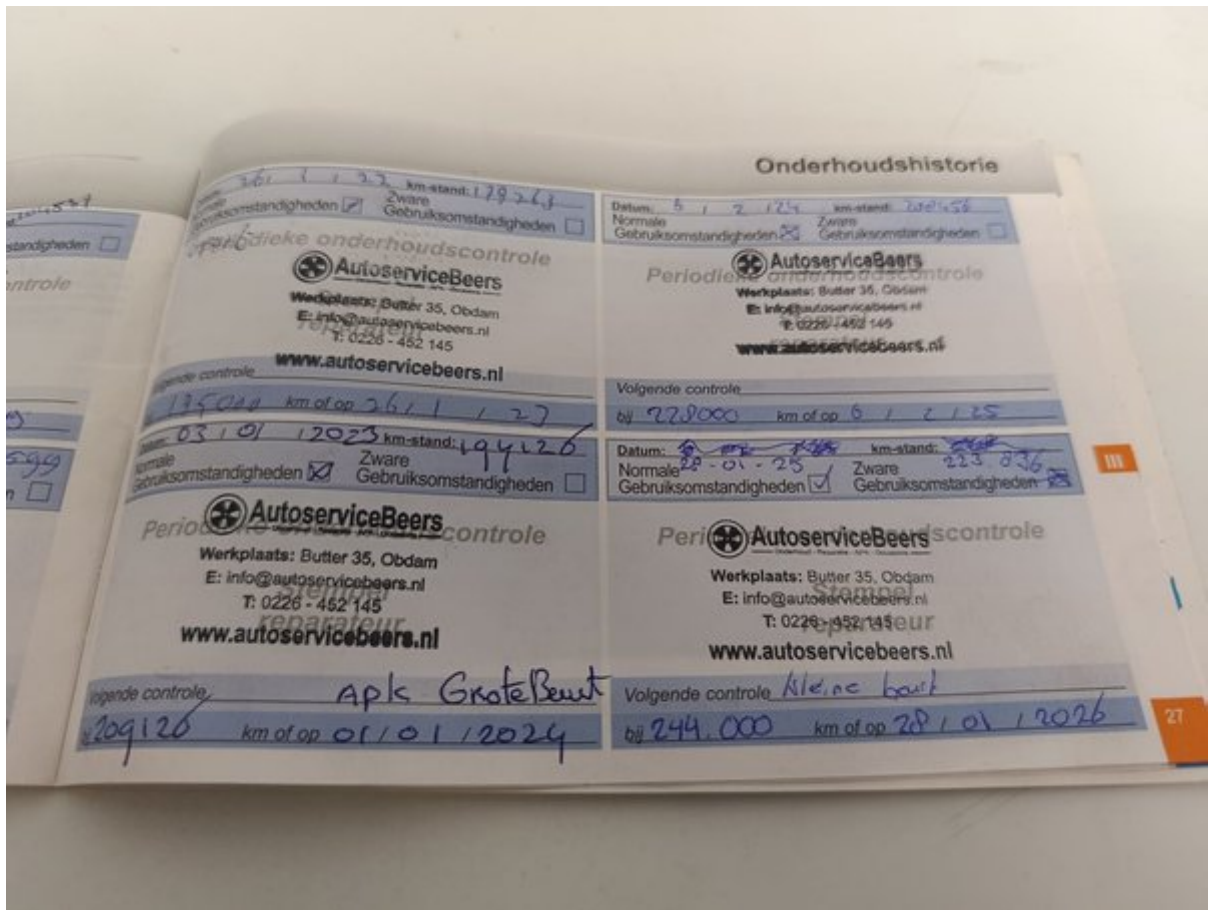 Onderhoudshistorie
standigheden
ntrole
599
Datum: 26 / 1 / 22 km-stand: 179263
Normale Gebruiksomstandigheden Zware Gebruiksomstandigheden
Periodieke onderhoudscontrole
AutoserviceBeers
Werkplaats: Butter 35, Obdam
E: info@autoservicebeers.nl
T: 0226 - 452 145
www.autoservicebeers.nl
Stempel
reparateur
Volgende controle
km of op 26 / 1 / 23
Datum: 03 / 01 / 2023 km-stand: 194126
Normale Gebruiksomstandigheden Zware Gebruiksomstandigheden
Periodieke onderhoudscontrole
AutoserviceBeers
Werkplaats: Butter 35, Obdam
E: info@autoservicebeers.nl
T: 0226 - 452 145
www.autoservicebeers.nl
Stempel
reparateur
Volgende controle APK Grote Beurt
bij 209126 km of op 01 / 01 / 2024
Datum: 6 / 2 / 24 km-stand:
Normale Gebruiksomstandigheden Zware Gebruiksomstandigheden
Periodieke onderhoudscontrole
AutoserviceBeers
Werkplaats: Butter 35, Obdam
E: info@autoservicebeers.nl
T: 0226 - 452 145
www.autoservicebeers.nl
Stempel
Volgende controle
bij 228000 km of op 6 / 2 / 25
Datum: km-stand:
28-01-25 223 836
Normale Gebruiksomstandigheden Zware Gebruiksomstandigheden
Periodieke onderhoudscontrole
AutoserviceBeers
Werkplaats: Butter 35, Obdam
E: info@autoservicebeers.nl
T: 0226 - 452 145
www.autoservicebeers.nl
Stempel
reparateur
Volgende controle Kleine beurt
bij 244.000 km of op 28 / 01 / 2026
III
27